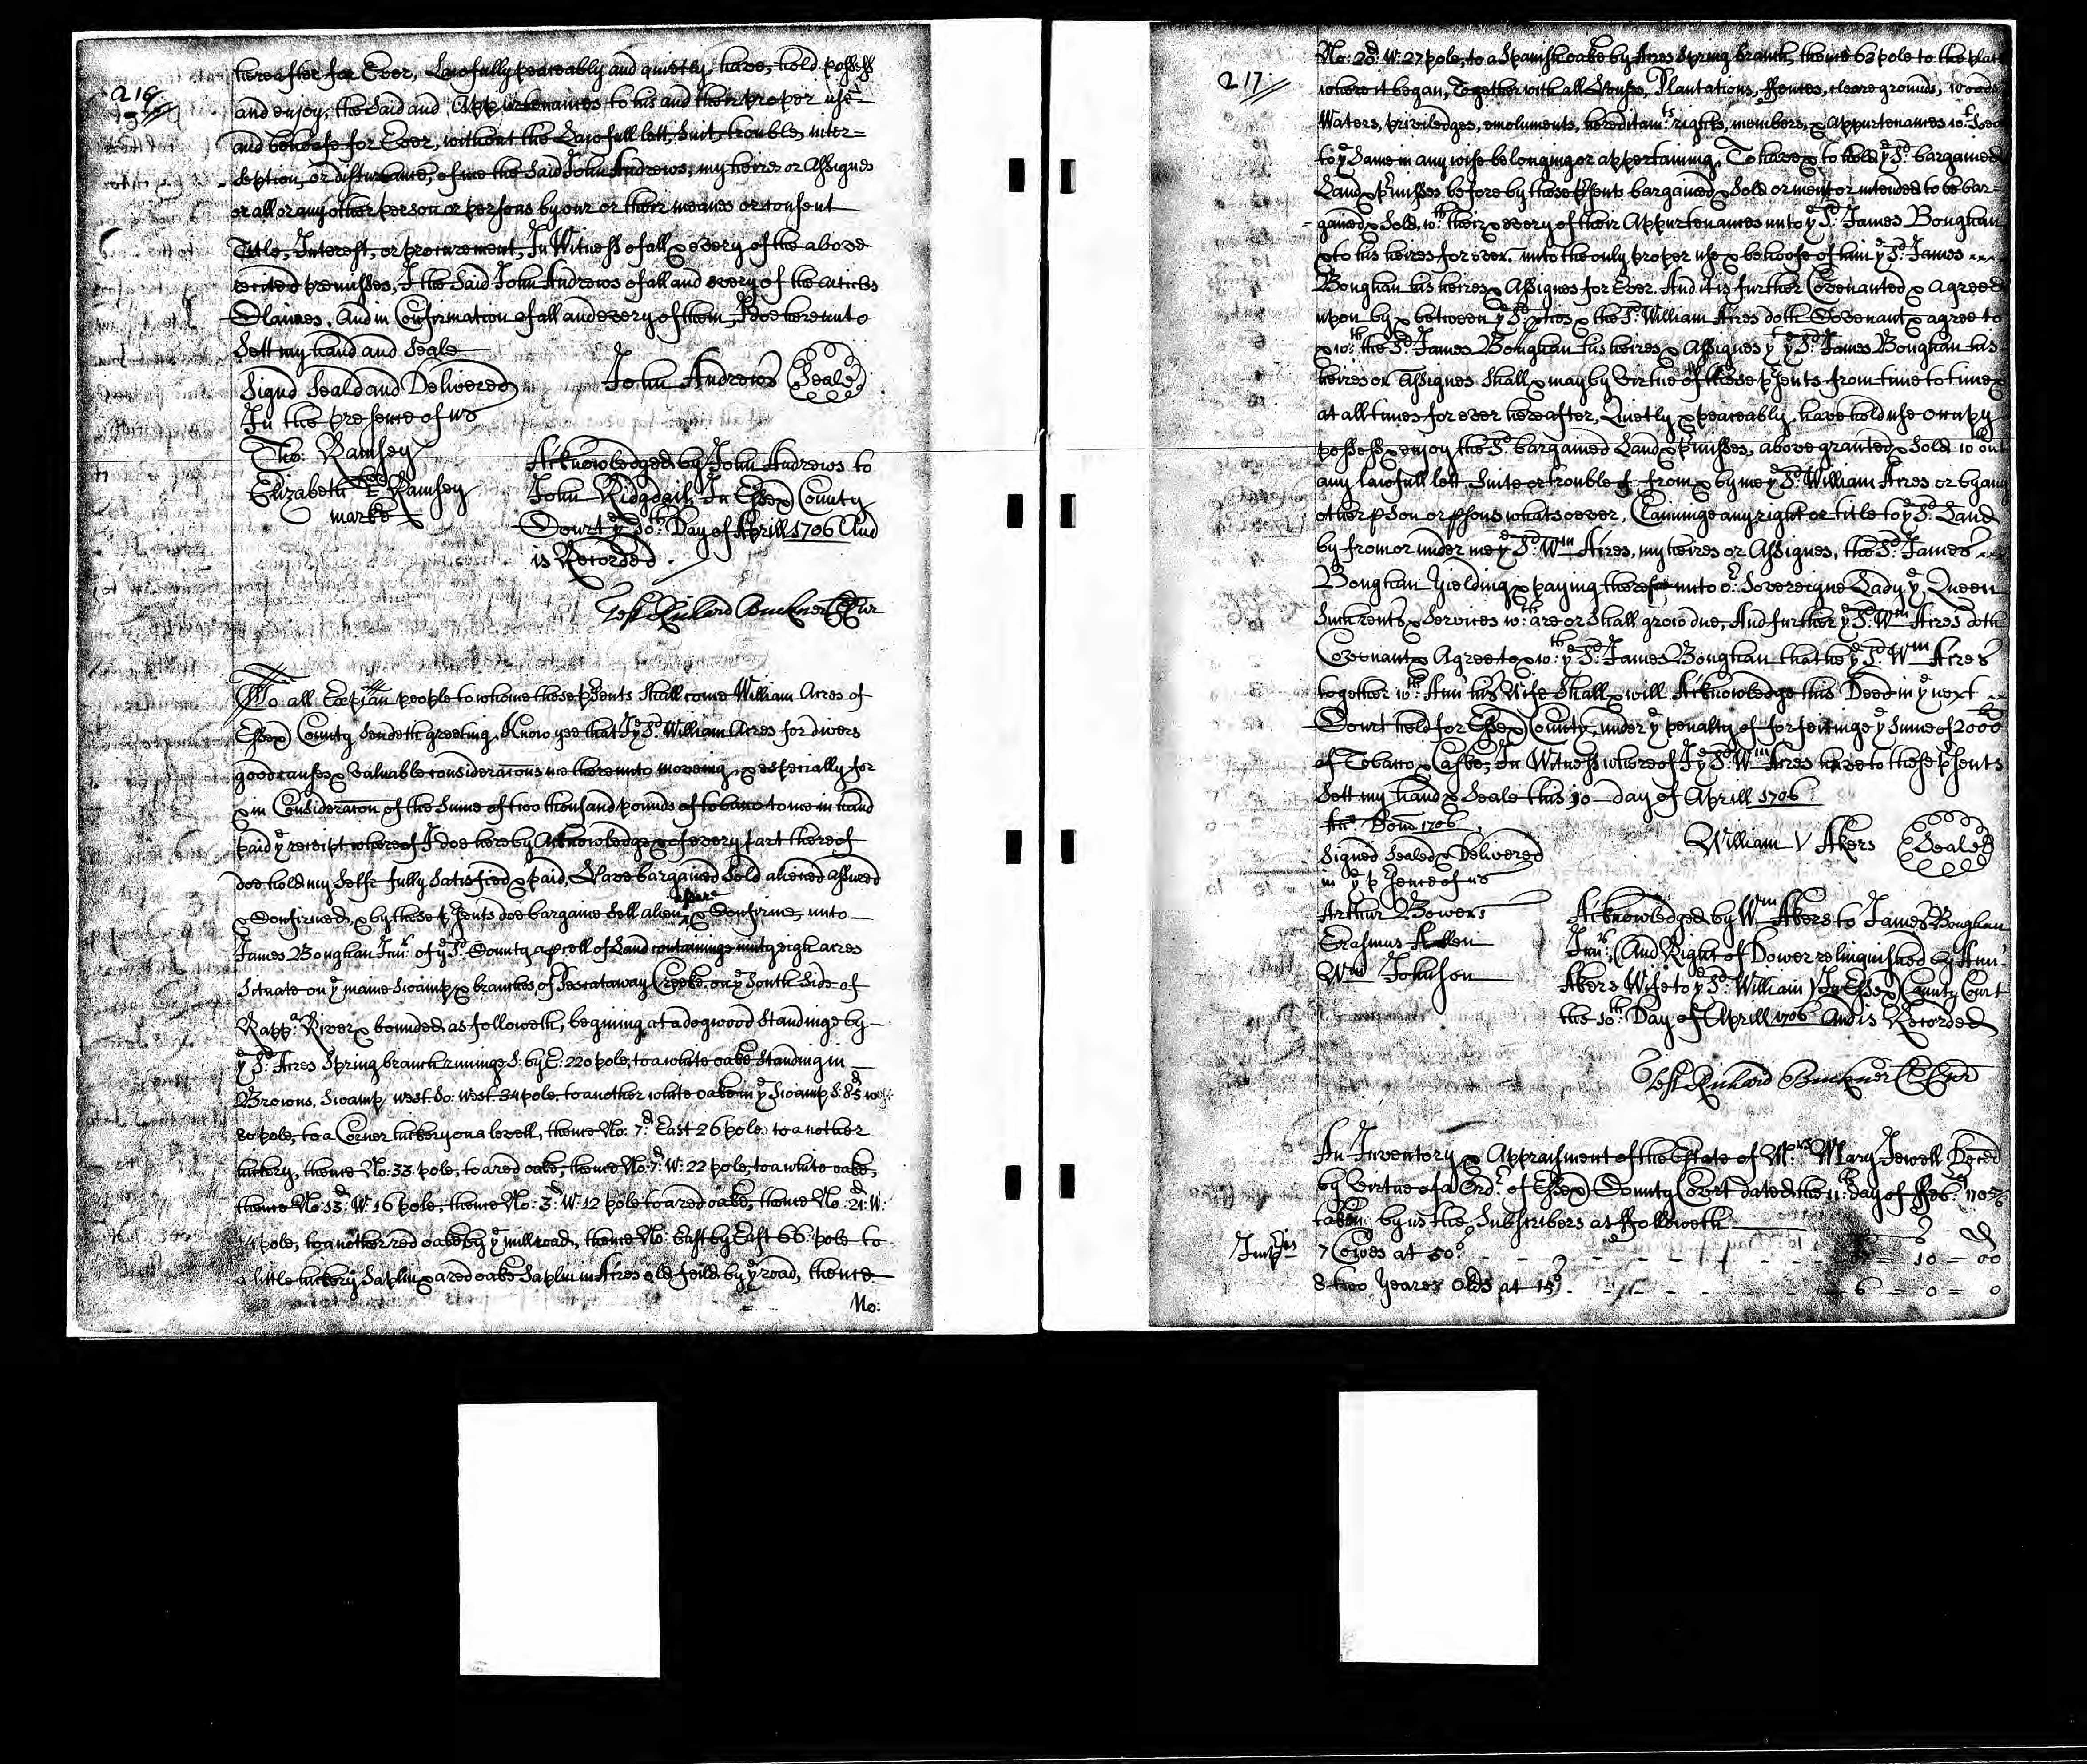 216
hereafter for Ever, Lawfully peaceably and quietly, have, hold possess
and enjoy, the Said and Appurtenances to his and their proper use
and behoofe for Ever, without the Lawfull lett, Suit, trouble, inter=
ruption, or disturbance, of me the Said John Andrews, my heires or Assignes
or all or any other person or persons by our or their meanes or consent
Title, Interest, or procurement, In Witness of all & every of the above
recited premisses, I the Said John Andrews of all and every of the articles
Clauses, And in Confirmation of all and every of them I doe hereunto
Sett my hand and Seale
Signd Seald and Delivered John Andrews Seale
In the presence of us
Tho: Ramsey
Elizabeth E Ramsey
her marke
Acknowledged by John Andrews to
John in Essex County
Court ye 10th: Day of Aprill 1706 And
is Recorded
Test Richard Buckner Cl Cur
To all Xpian people to whome these psents Shall come William Acres of
Essex County Sendeth greeting, Know yee that I ye Sd: William Acres for divers
good causes & valuable consideracons me thereunto moveing, & especially for
& in Consideracon of the Sume of two thousand pounds of tobacco to me in hand
paid ye receipt whereof I doe hereby Acknowledge & of every part thereof
doe hold my Selfe fully Satisfied & paid, Have bargained Sold aliened assured
& Confirmed, & by these psents doe bargaine Sell alien assure & Confirme, unto
James Boughan Junr: of ye Sd: County a pcell of Land containinge ninty eigh acres
Situate on ye maine Swamp & branches of Pescataway Creeke, on ye South Side of
Rappa: River & bounded as followeth, begining at a dogwood Standinge by
ye Sd: Acres Spring branch runinge S: by E: 220 pole, to a white oake Standing in
Browns, Swamp, west. So: west. 34 pole, to another white oake in ye Swamp S. 85d
80 pole, to a Corner hickory on a levell, thence No: 7d: East 26 pole to another
hickory, thence No: 33: pole, to a red oake, thence No: 7d: W: 22 pole, to a white oake,
thence No: 13d: W: 16 pole, thence No: 3d: W: 12 pole to a red oake, thence No: 21d: W:
14 pole, to another red oake by ye mill road, thence No: East by East 66: pole to
a little hickory Saplin & a red oake Saplin in Acres old feild by ye road, thence
No:
217
No: 28d: W: 27 pole, to a Spanish oake by Acres Spring branch, thence 63 pole to the place
where it began, Together with all Houses, Plantations, ffences, cleare grounds, woods
Waters, priviledges, emoluments, hereditamts: rights, members, & Appurtenances
to ye Same in any wise belonging or appertaining, To have & to hold ye Sd: bargained
Land & pmisses, before by these psents bargained & Sold or ment or intended to be bar=
gained & Sold, wth: their & every of their Appurtenances unto ye Sd: James Boughan
& to his heires for ever. unto the only proper use & behoofe of him ye Sd: James
Boughan his heires & Assignes for Ever. And it is further Covenanted & agreed
upon by & between ye Sd: pties & the Sd: William Acres doth Covenant & agree to
& wth: the Sd: James Boughan his heires & Assignes yt ye Sd: James Boughan his
heires or Assignes Shall & may by Virtue of these psents from time to time &
at all times for ever hereafter, Quietly & peaceably, have hold use occupy
possess & enjoy the Sd: bargained Land & pmisses, above granted & Sold wthout
any lawfull lett Suite or trouble of from & by me ye Sd: William Acres or by any
other pson or psons whatsoever, Claiminge any right or title to ye Sd: Land
by from or under me ye Sd: Wm Acres, my heires or Assignes, the Sd: James
Boughan Yielding & paying therefor unto or: Sovereigne Lady ye Queen
Such rents & Services wch: are or Shall grow due, And further ye Sd: Wm Acres doth
Covenant & Agree to & wth: ye Sd: James Boughan that he ye Sd: Wm Acres
together wth: Ann his Wife Shall & will Acknowledge this Deed in ye next
Court held for Essex County, under ye penalty of forfeitinge ye Sume of 2000
of Tobacco & Caske, In Witness whereof I ye Sd: Wm Acres have to these psents
Sett my hand & Seale this 10 day of Aprill 1706
Ano: Dom: 1706
Signed Sealed & Delivered William V Akers Seale
in ye psence of us
Arthur Bowers
Erasmus Allen
Wm Johnson
Acknowledged by Wm Akers to James Boughan
Junr:, And Right of Dower relinquished by Ann
Akers Wife to ye Sd: William In Essex County Court
the 10th: Day of Aprill 1706 And is Recorded
Test Richard Buckner Cl Cur
An Inventory & Appraisment of the Estate of Mrs: Mary Jewell Deced
by Virtue of a Ordr: of Essex County Court dated the 11th: day of ffebr: 1705/6
taken by us the Subscribers as ffolloweth
Imprs 7 Cowes at 50s - 10 - 00
8 two Yeares Olds at 15s 6 - 0 - 0